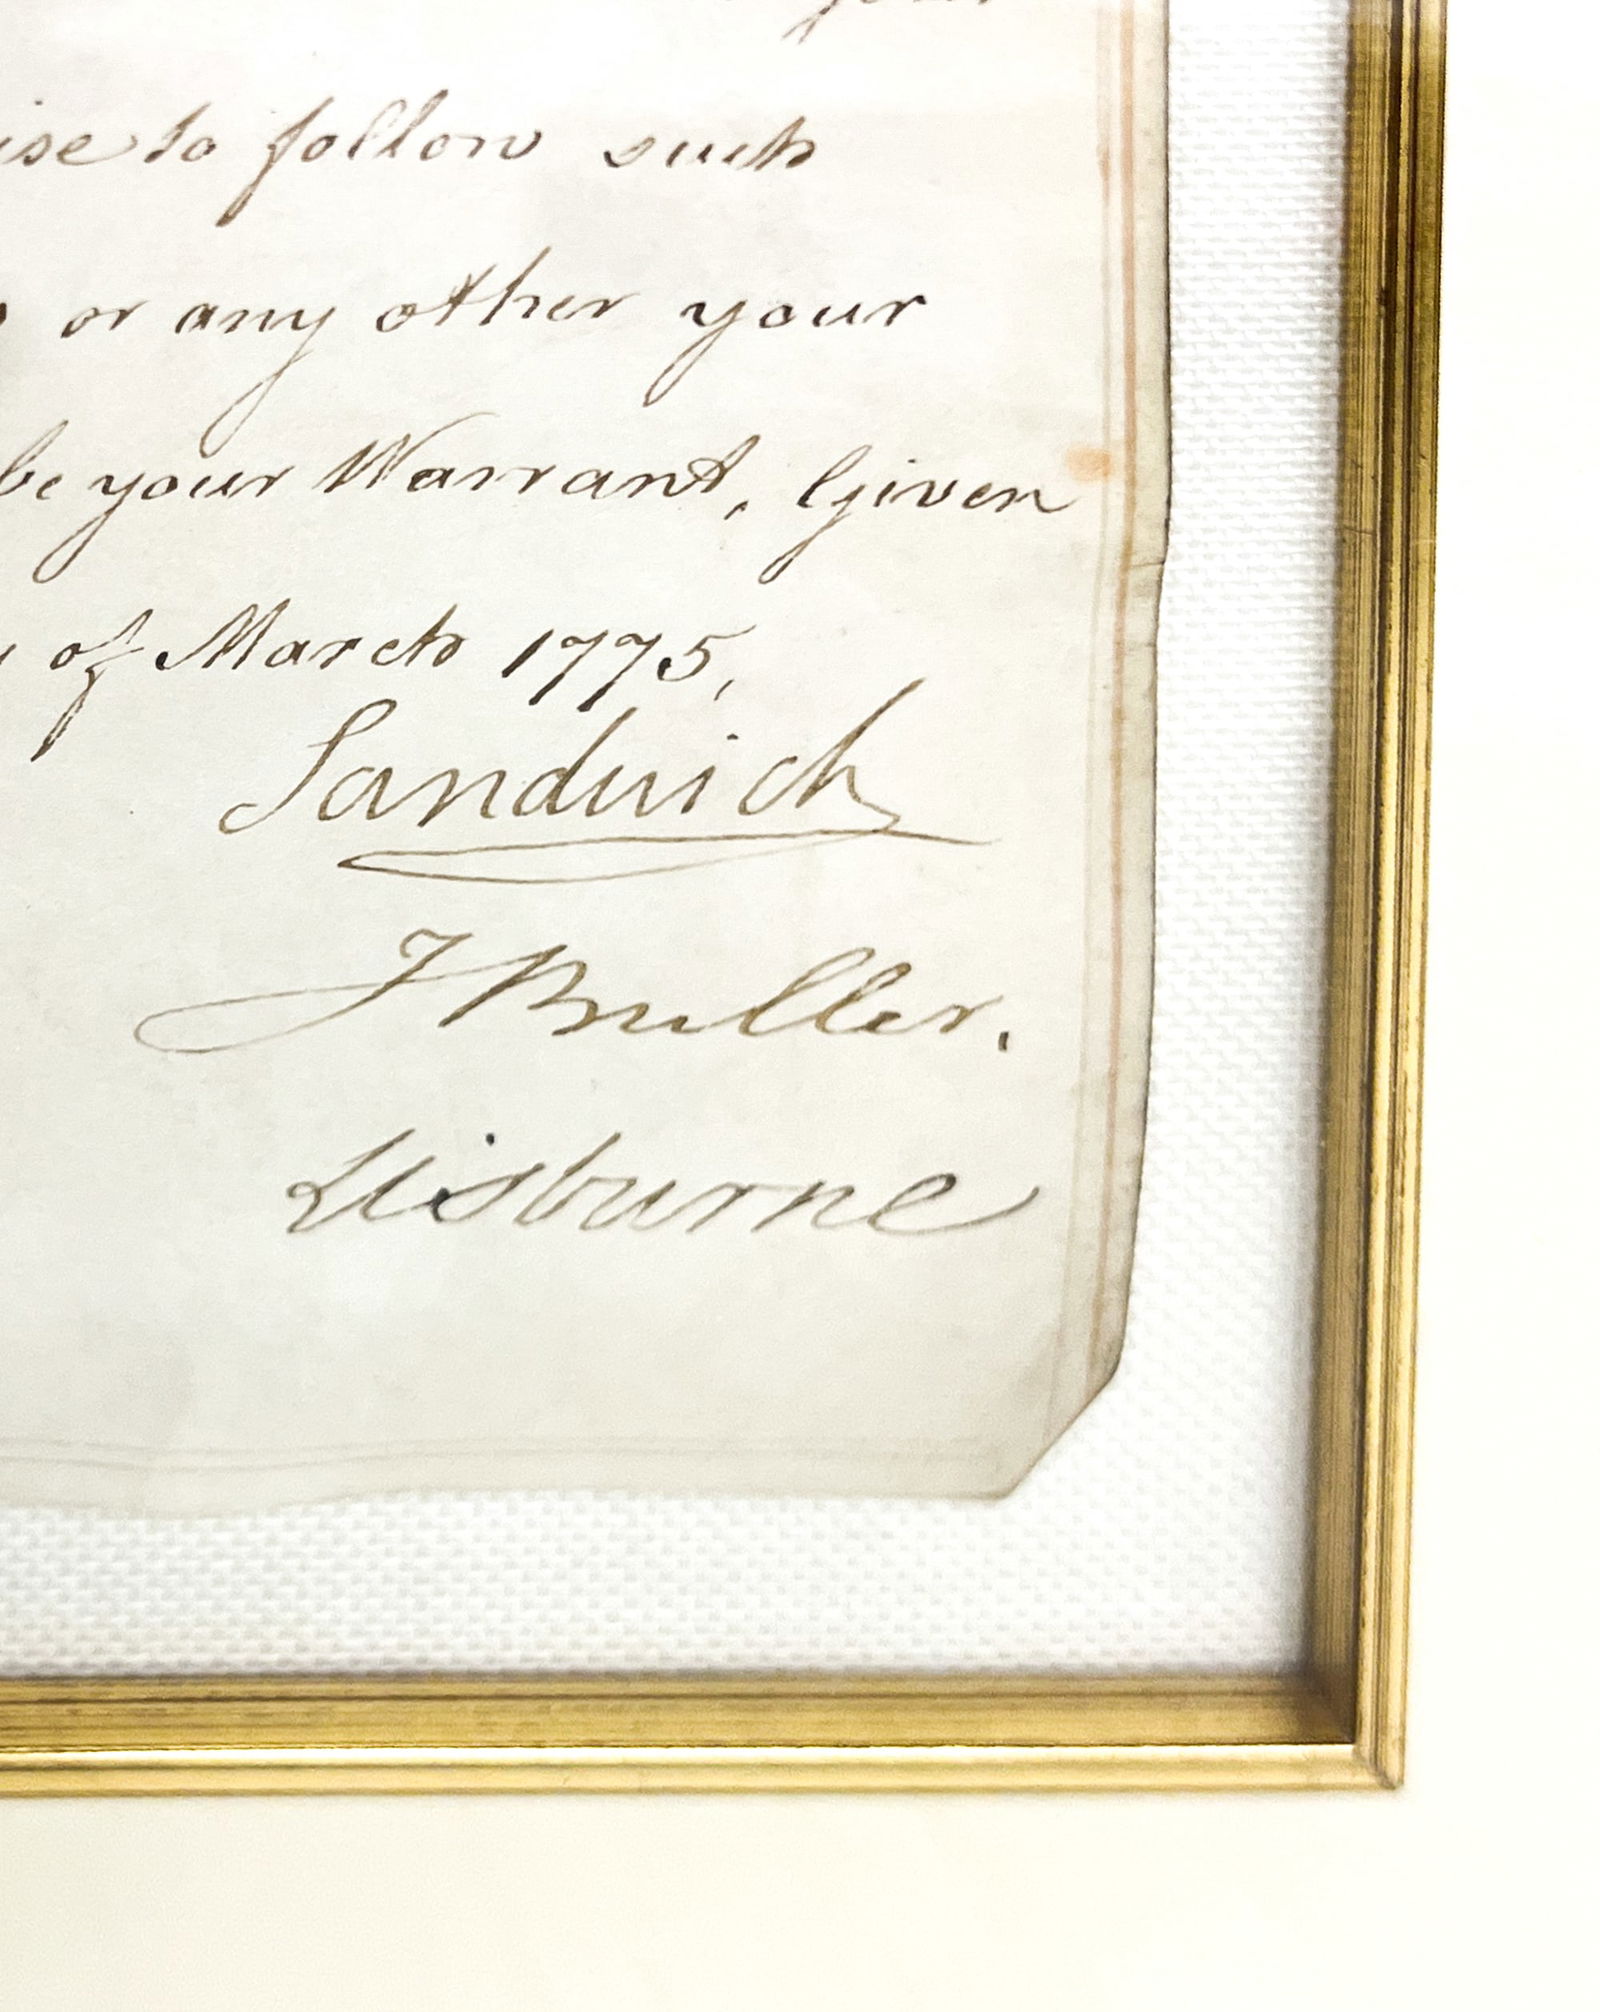 ise to follow such
or any other your
be your Warrant, Given
of March 1775,
Sandwich
J Buller.
Lisburne